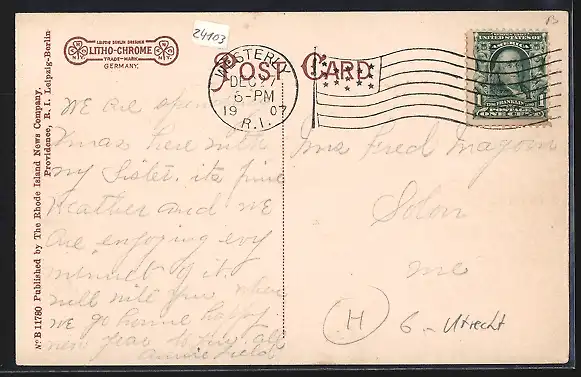 LEIPZIG BERLIN DRESDEN
LITHO-CHROME
TRADE-MARK
GERMANY.
24103
B
POST CARD
WESTERLY
DEC 27
6-PM
19 07
R.I.
UNITED STATES OF
AMERICA
FRANKLIN
1 1
ONE CENT
No B 11780 Published by The Rhode Island News Company.
Providence, R. I. Leipzig-Berlin
We are spending
Xmas here with
my Sister. its fine
Weather and we
are enjoying evry
minuet of it.
will rite you when
we go home happy
new year to you all
Annie Field
Mrs Fred Magoon
Solon
Me
H
6 - Utrecht